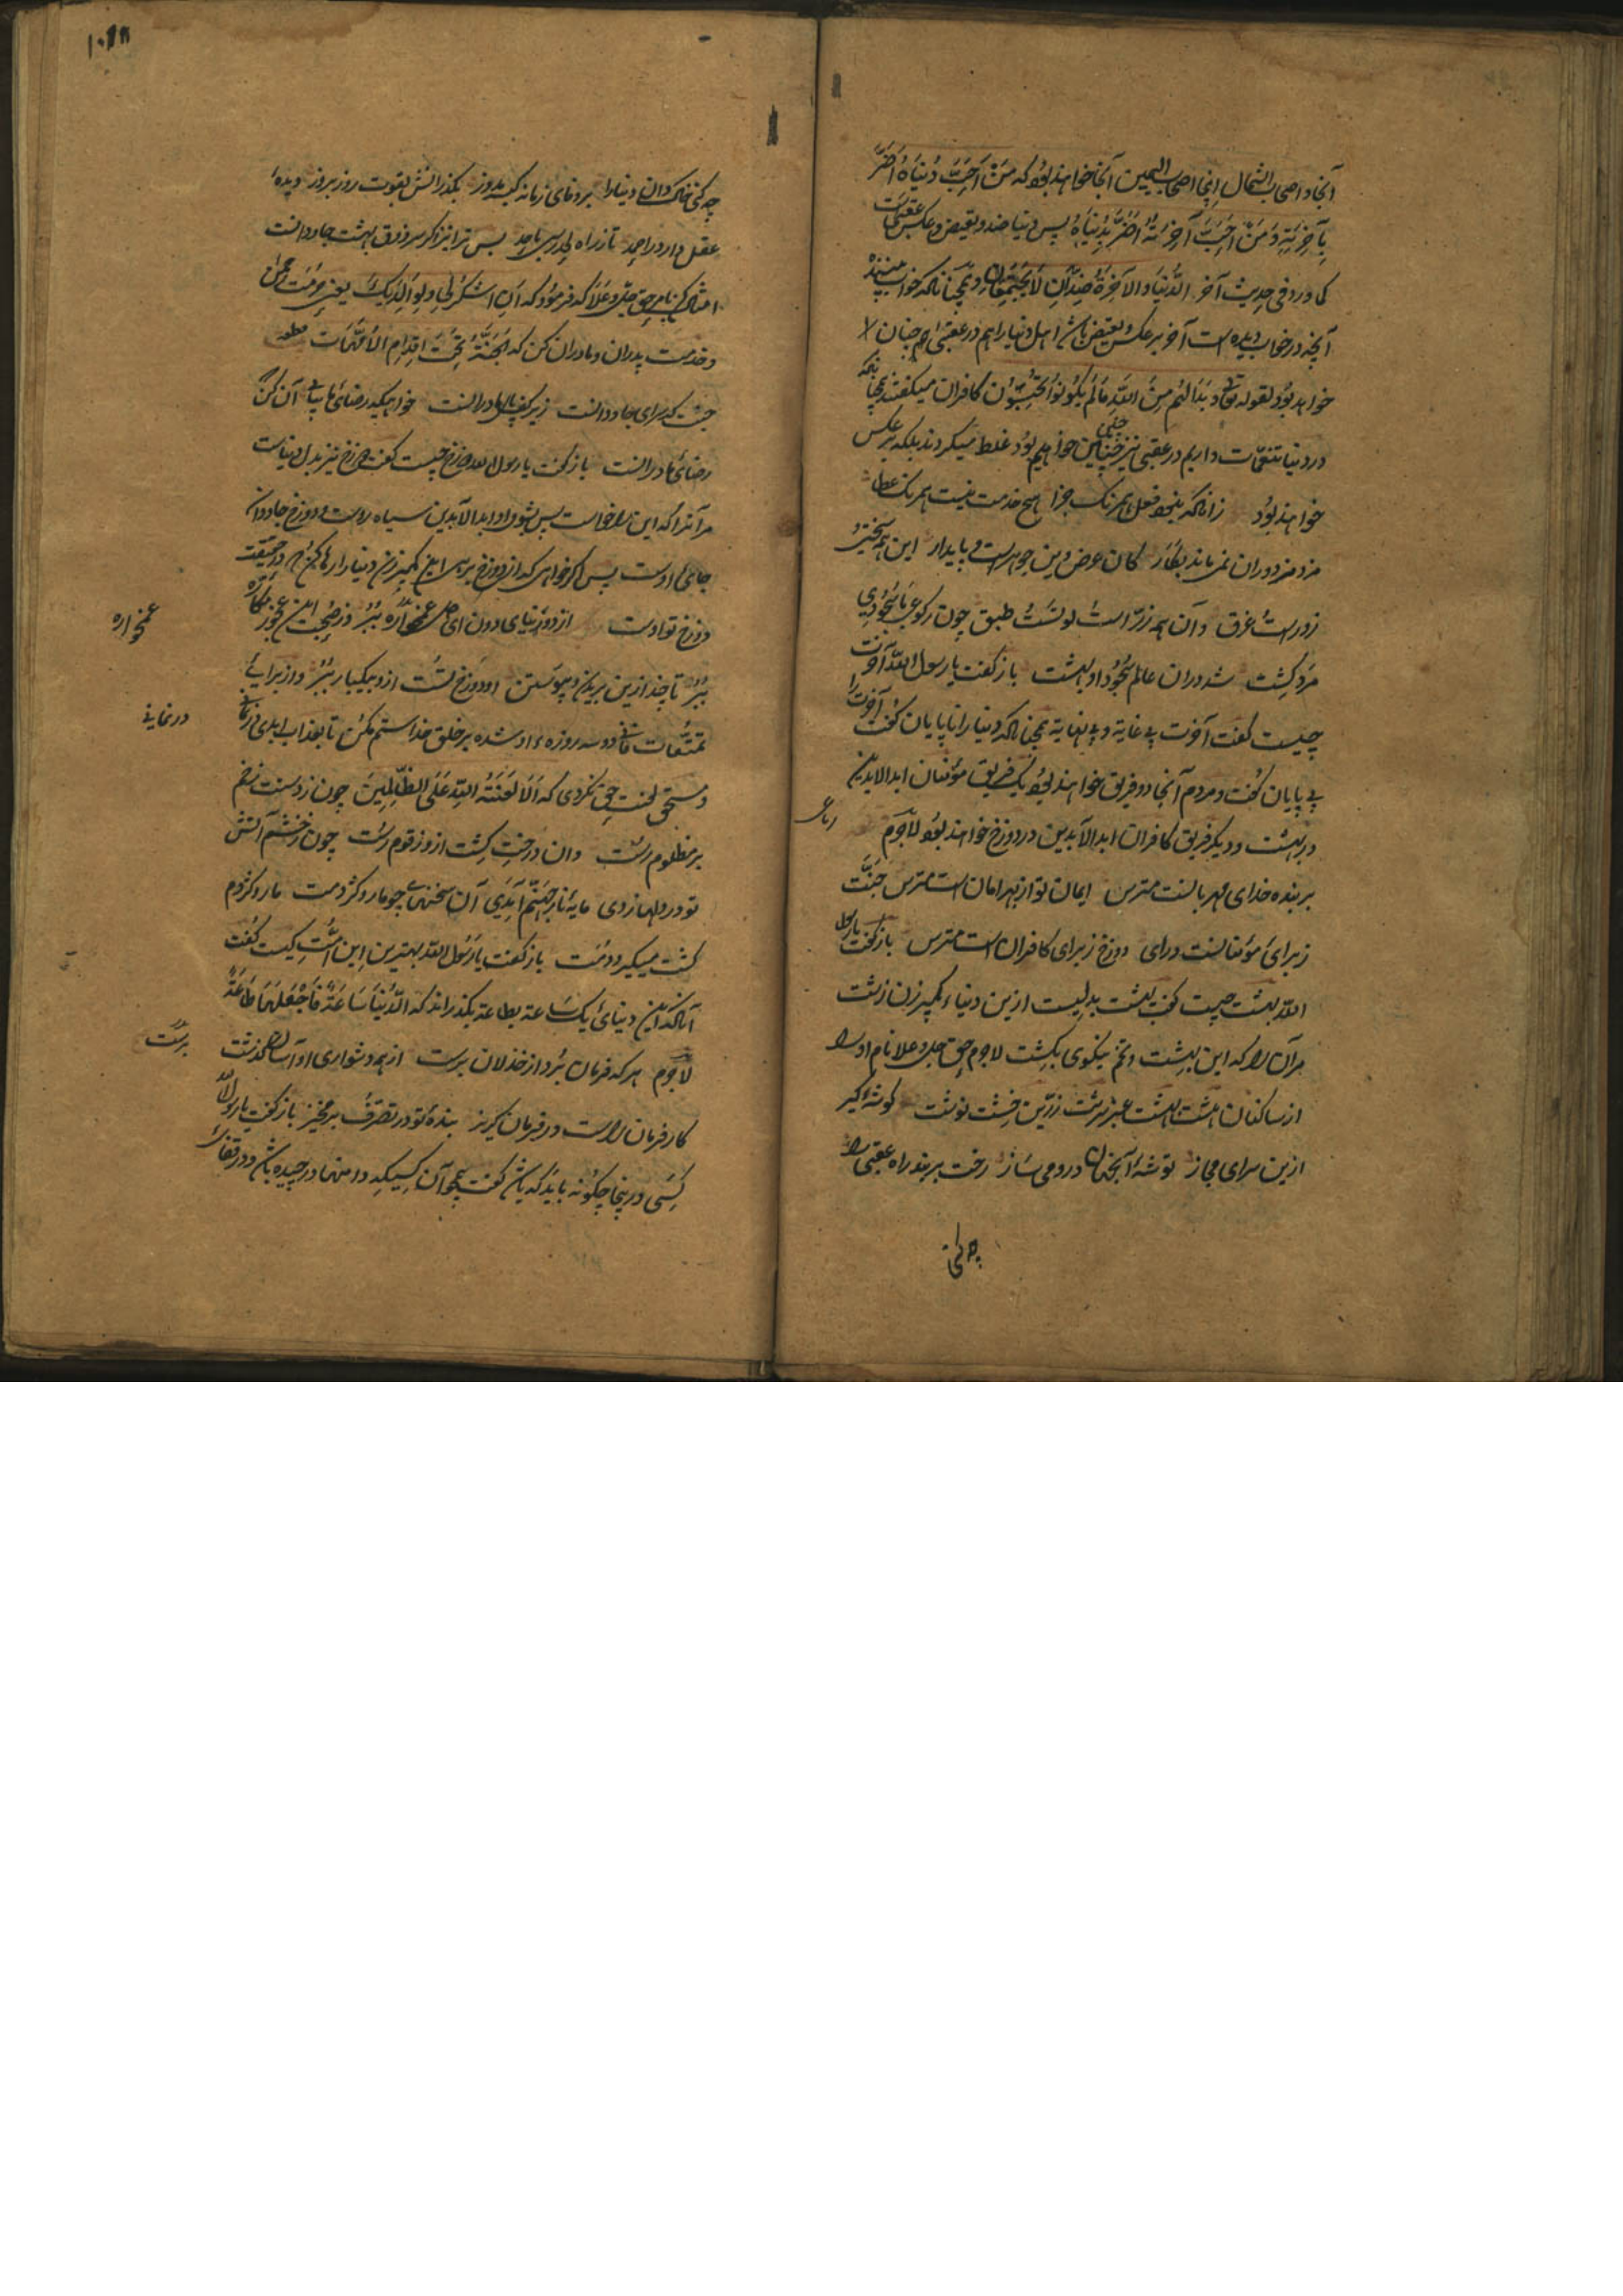 آنجا و اصحاب الشمال اینجا اصحاب الیمین آنجا خواهند بود که مَنْ اَحَبَّ دُنیَاهُ اَضَرَّ
بِآخِرَتِهِ وَ مَنْ اَحَبَّ آخِرَتَهُ اَضَرَّ بِدُنیَاهُ پس دنیا ضد و نقیض و عکس عقبی است
کما ورد فی حدیث آخر الدُّنیَا وَ الآخِرَةُ ضِدَّانِ لَا یَجْتَمِعَانِ و همچنانکه خواب بیننده
آنچه در خواب دیده است آخر برعکس و نقیض باشد اهل دنیا را هم در عقبی هم چنان
خواهد بود لقوله تعالی وَ بَدَا لَهُم مِنَ اللهِ مَا لَمْ یَکُونُوا یَحْتَسِبُونَ کافران میگفتند همچنانکه
در دنیا تنعمات داریم در عقبی نیز چنین خواهیم بود غلط میکردند بلکه برعکس
خواهند بود زانکه نبود فعل همرنگ جزا هیچ خدمت نیست همرنگ عطا
مزد مزدوران نمی ماند بکار کان عرض وین جوهرست و پایدار این همه سختی
زورست و عرق و آن همه زرّ است و لؤلؤ است طبق چون رکوعی یا سجودی
مرد کشت شد در آن عالم سجود او بهشت باز گفت یا رسول الله آخرت
چیست گفت آخرت بی غایة و بی نهایة همچنانکه دنیا را ناپایان گفت آخرت را
بی پایان گفت و مردم آنجا دو فریق خواهند بود یک فریق مؤمنان ابدالابدین
در بهشت و دیگر فریق کافران ابد الآبدین در دوزخ خواهند بود لاجرم
رباعی
بر بنده خدای مهربانست مترس ایمان تو از بهر امان است مترس جنّت
ز برای مؤمنانست و رای دوزخ ز برای کافران است مترس باز گفت یا رسول
الله بهشت چیست گفت بهشت بدلیست ازین دنیاء کمپیر زن زشت
مر آن را که این بهشت و تخم نیکوی بکشت لاجرم حق جل و علا نام او را
از ساکنان هشت بهشت عنبر سرشت زرّین خشت نوشت گوشه گیر
ازین سرای مجاز توشه آنجهان درو می ساز رخت بربند راه عقبی را
چه کنی
چه کنی خاکدان دنیا را بر وفای زمانه کیسه مدوز بگذرانش بقوت روز بروز دیده
عقل دار در راه
امتثال کن بامر حق جلّ و علا که فرمود که اَنِ اشْکُرْ لِی وَ لِوَالِدَیْکَ یعنی حرمت
و خدمت پدران و مادران کن که الجَنَّةُ تَحْتَ اَقْدَامِ الاُمَّهَات
جنت که سرای جاودانست زیر کف پای مادرانست خواهیکه رضای آن کن
رضای مادرانست باز گفت یا رسول الله دوزخ چیست گفت دوزخ نیز بدل دنیاست
مر آنرا که این را خواست پس شود او ابد الآبدین سیاه روست و دوزخ جاودان
جای اوست پس اگر خواهی که از دوزخ برهی این کمپیر زن دنیا را رها کن که در حقیقت
دوزخ تو اوست از دو دنیای دون ای دل غمخواره ببُر وز صحبت این عجوز مکاره
غمخواره
ببُر تا چند ازین بریدن و پیوستن او دوزخ تست ازو بیکبار ببُر و از برای
تمتّعات فانی دو سه روزه او شده بر خلق خدا ستم مکن تا بعذاب ابدی در نمانی
در نمانی
و مستحق لعنت حق نگردی که اَلَا لَعْنَةُ اللهِ عَلَی الظَّالِمِینَ چون ز دستت زخم
بر مظلوم رست و آن درختی گشت ازو زقوم رست چون ز خشم آتش
تو در دلها زدی مایۀ نار جهنم آمدی آن سخنهای چو مار و کژدمت مار و کژدم
گشت میگیرد دمت باز گفت یا رسول الله بهترین این امّت کیست گفت
آنکه این دنیای یک ساعة بطاعة بگذراند که الدُّنیَا سَاعَةٌ فَاجْعَلْهَا طَاعَةً
لاجرم هر که فرمان برد از خذلان برست از همه دشواری او آسان گذشت
برست
کار فرمان راست در فرمان گریز بندۀ تو در تصرف بر مخیز باز گفت یا رسول الله
کسی درینجا چگونه باید که باشد گفت همچو آن کسیکه دامنها در چیده باشد و در قفای